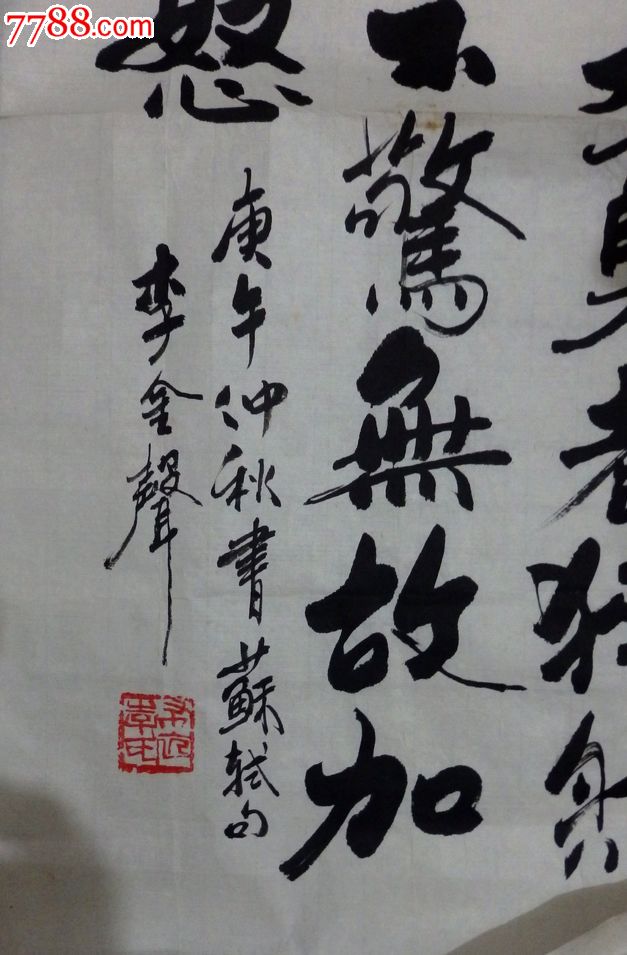 勇者
不驚無故加
怒
庚午仲秋書蘇軾句
李金聲
7788.com